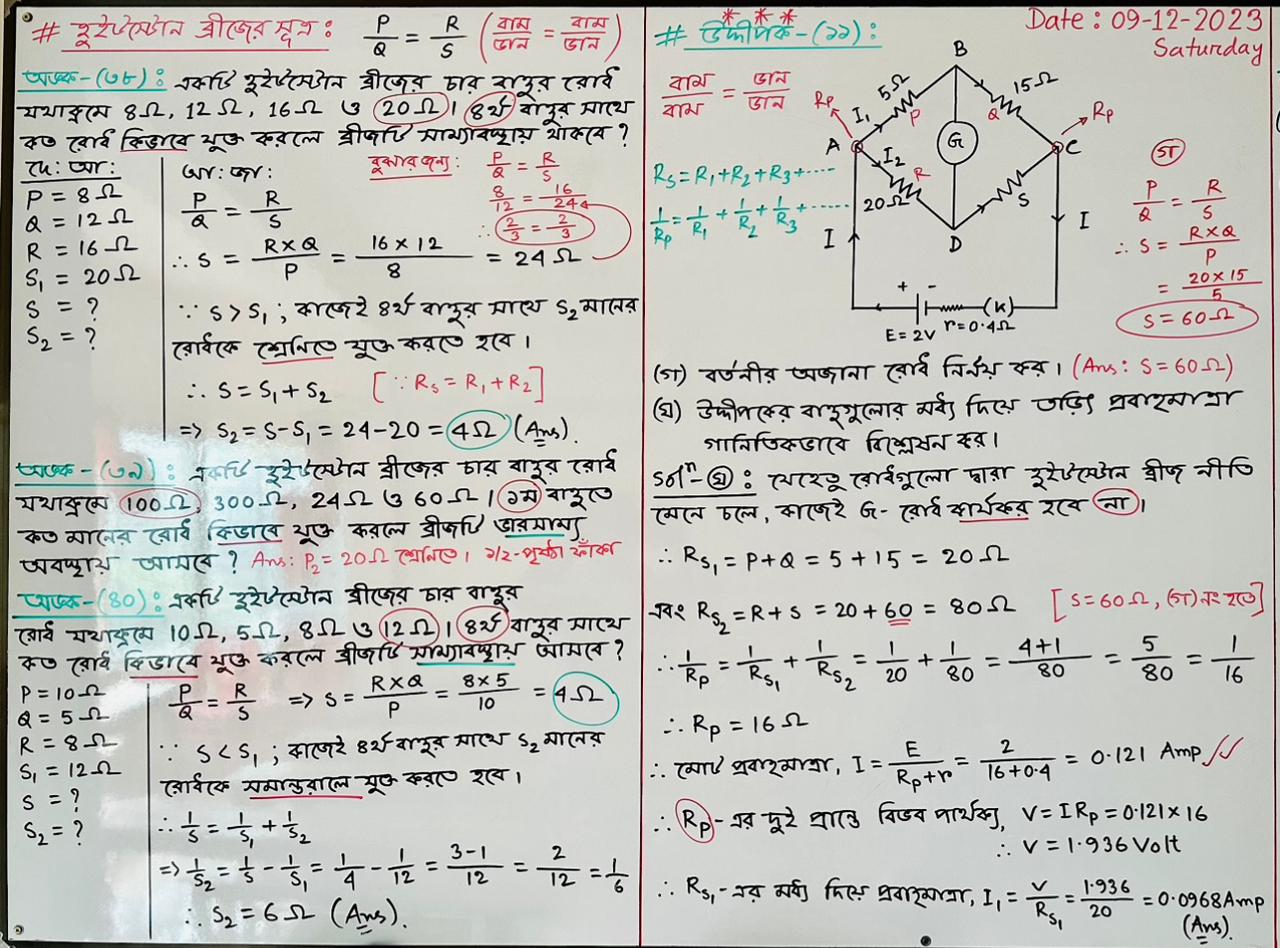 # হুইটস্টোন ব্রীজের সূত্র : P/Q = R/S (বাম/ডান = বাম/ডান)
অংক-(৩৮) : একটি হুইটস্টোন ব্রীজের চার বাহুর রোধ
যথাক্রমে 8Ω, 12Ω, 16Ω ও 20Ω। ৪র্থ বাহুর সাথে
কত রোধ কিভাবে যুক্ত করলে ব্রীজটি সাম্যাবস্থায় থাকবে ?
দে: আ:
P = 8Ω
Q = 12Ω
R = 16Ω
S₁ = 20Ω
S = ?
S₂ = ?
আ: জা:
P/Q = R/S
বুঝার জন্য : P/Q = R/S
8/12 = 16/24
∴ 2/3 = 2/3
∴ S = R×Q/P = 16×12/8 = 24Ω
∵ S > S₁ ; কাজেই ৪র্থ বাহুর সাথে S₂ মানের
রোধকে শ্রেনিতে যুক্ত করতে হবে।
∴ S = S₁ + S₂ [∵ Rs = R₁ + R₂]
=> S₂ = S - S₁ = 24 - 20 = 4Ω (Ans).
অংক-(৩৯) : একটি হুইটস্টোন ব্রীজের চার বাহুর রোধ
যথাক্রমে 100Ω, 300Ω, 24Ω ও 60Ω। ১ম বাহুতে
কত মানের রোধ কিভাবে যুক্ত করলে ব্রীজটি ভারসাম্য
অবস্থায় আসবে ? Ans: P₂ = 20Ω শ্রেনিতে। ১/২-পৃষ্ঠা ফাঁকা
অংক-(৪০) : একটি হুইটস্টোন ব্রীজের চার বাহুর
রোধ যথাক্রমে 10Ω, 5Ω, 8Ω ও 12Ω। ৪র্থ বাহুর সাথে
কত রোধ কিভাবে যুক্ত করলে ব্রীজটি সাম্যাবস্থায় আসবে ?
P = 10Ω
Q = 5Ω
R = 8Ω
S₁ = 12Ω
S = ?
S₂ = ?
P/Q = R/S => S = R×Q/P = 8×5/10 = 4Ω
∵ S < S₁ ; কাজেই ৪র্থ বাহুর সাথে S₂ মানের
রোধকে সমান্তরালে যুক্ত করতে হবে।
∴ 1/S = 1/S₁ + 1/S₂
=> 1/S₂ = 1/S - 1/S₁ = 1/4 - 1/12 = 3-1/12 = 2/12 = 1/6
∴ S₂ = 6Ω (Ans).
# উদ্দীপক-(১১) :
* * *
Date : 09-12-2023
Saturday
বাম/বাম = ডান/ডান
Rs = R₁+R₂+R₃+····
1/Rp = 1/R₁ + 1/R₂ + 1/R₃ +·····
B
5Ω
15Ω
Rp
I₁
P
Q
Rp
A
G
C
I₂
R
20Ω
S
D
I
I
+ -
(K)
E = 2V r = 0.4Ω
গ
P/Q = R/S
∴ S = R×Q/P
= 20×15/5
S = 60Ω
(গ) বর্তনীর অজানা রোধ নির্নয় কর। (Ans: S = 60Ω)
(ঘ) উদ্দীপকের বাহুগুলোর মধ্য দিয়ে তড়িৎ প্রবাহমাত্রা
গানিতিকভাবে বিশ্লেষন কর।
Solⁿ-ঘ : যেহেতু রোধগুলো দ্বারা হুইটস্টোন ব্রীজ নীতি
মেনে চলে, কাজেই G- রোধ কার্যকর হবে না।
∴ Rs₁ = P+Q = 5 + 15 = 20Ω
এবং Rs₂ = R+S = 20 + 60 = 80Ω [S = 60Ω, (গ) নং হতে]
∴ 1/Rp = 1/Rs₁ + 1/Rs₂ = 1/20 + 1/80 = 4+1/80 = 5/80 = 1/16
∴ Rp = 16Ω
∴ মোট প্রবাহমাত্রা, I = E/Rp+r = 2/16+0.4 = 0.121 Amp
∴ Rp - এর দুই প্রান্তে বিভব পার্থক্য, V = IRp = 0.121×16
∴ V = 1.936 Volt
∴ Rs₁ - এর মধ্য দিয়ে প্রবাহমাত্রা, I₁ = V/Rs₁ = 1.936/20 = 0.0968 Amp
(Ans).